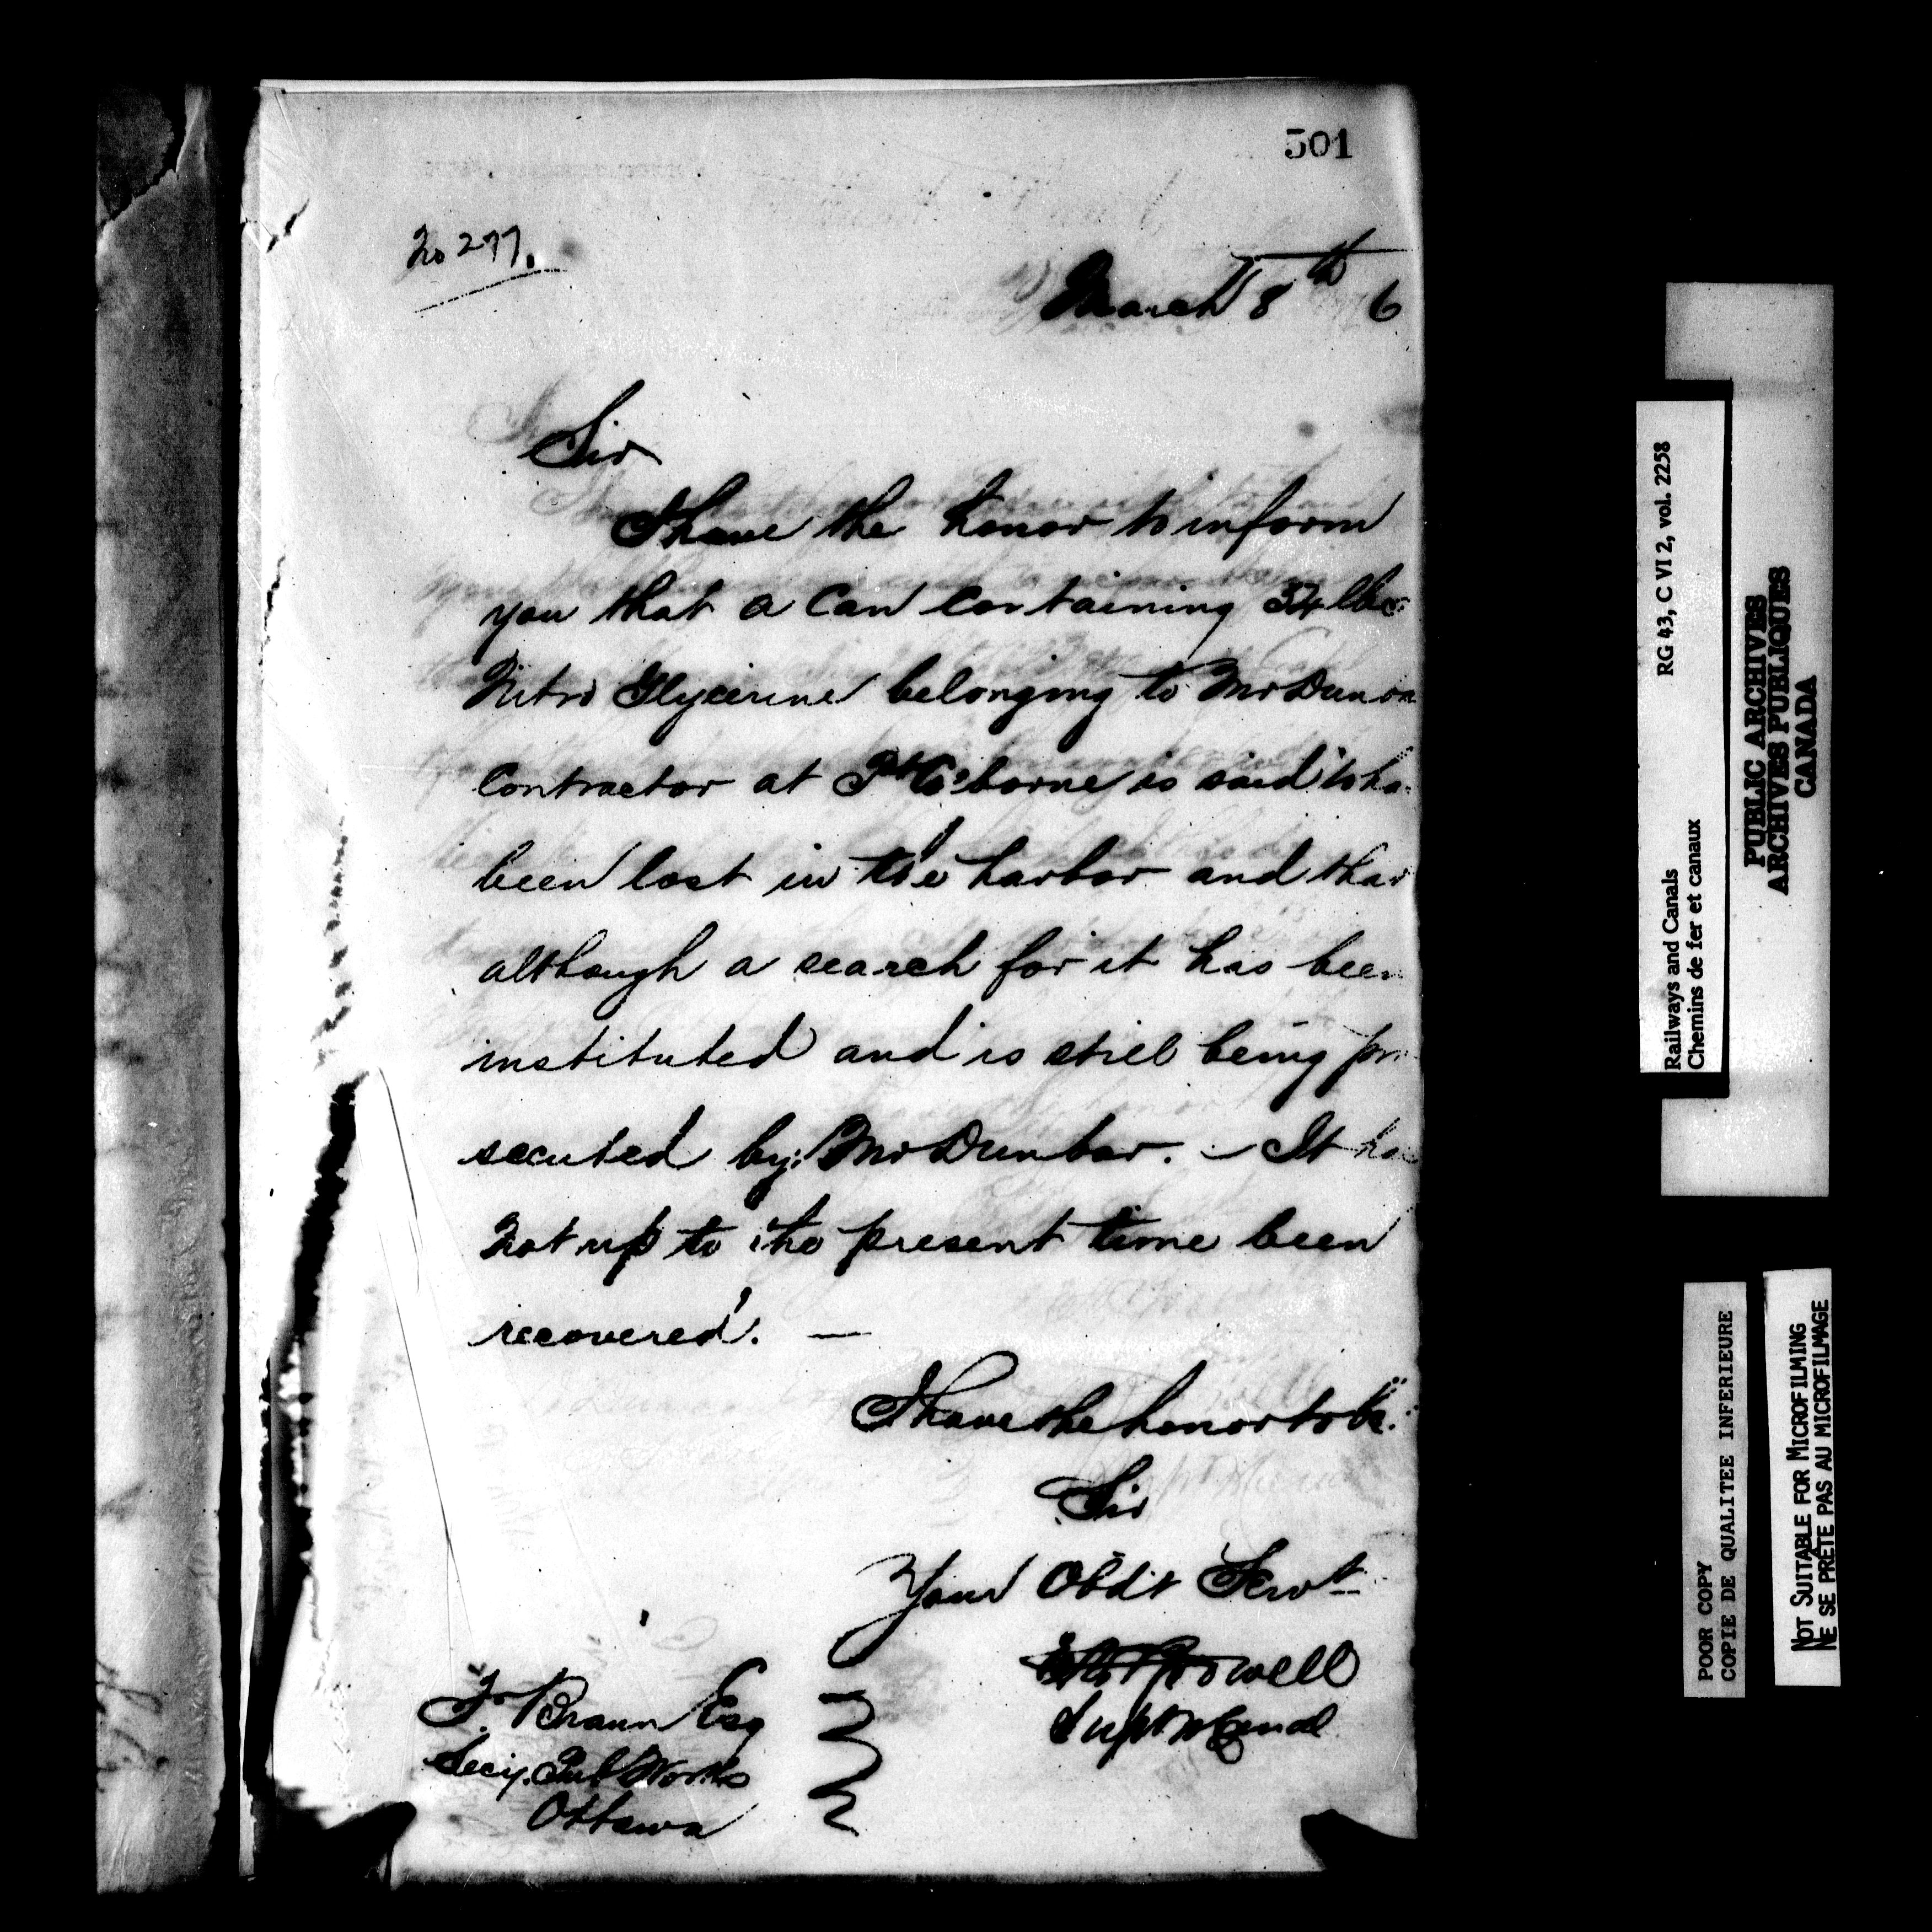 501
No 277.
March 8th 6
Sir
I have the honor to inform
you that a Can containing 34 lbs
Nitro Glycerine belonging to Mr Dun
Contractor at Pt Co'borne is said to ha
been lost in the harbor and that
although a search for it has been
instituted and is still being pro
secuted by Mr Dunbar. – It ha
not up to the present time been
recovered. —
I have the honor to be
Sir
Your Obdt Servt
Supt W Canal
F. Braun Esq
Secy. Pub Works
Ottawa
Railways and Canals RG 43, C VI 2, vol. 2258
Chemins de fer et canaux
PUBLIC ARCHIVES
ARCHIVES PUBLIQUES
CANADA
POOR COPY
COPIE DE QUALITEE INFERIEURE
NOT SUITABLE FOR MICROFILMING
NE SE PRÊTE PAS AU MICROFILMAGE